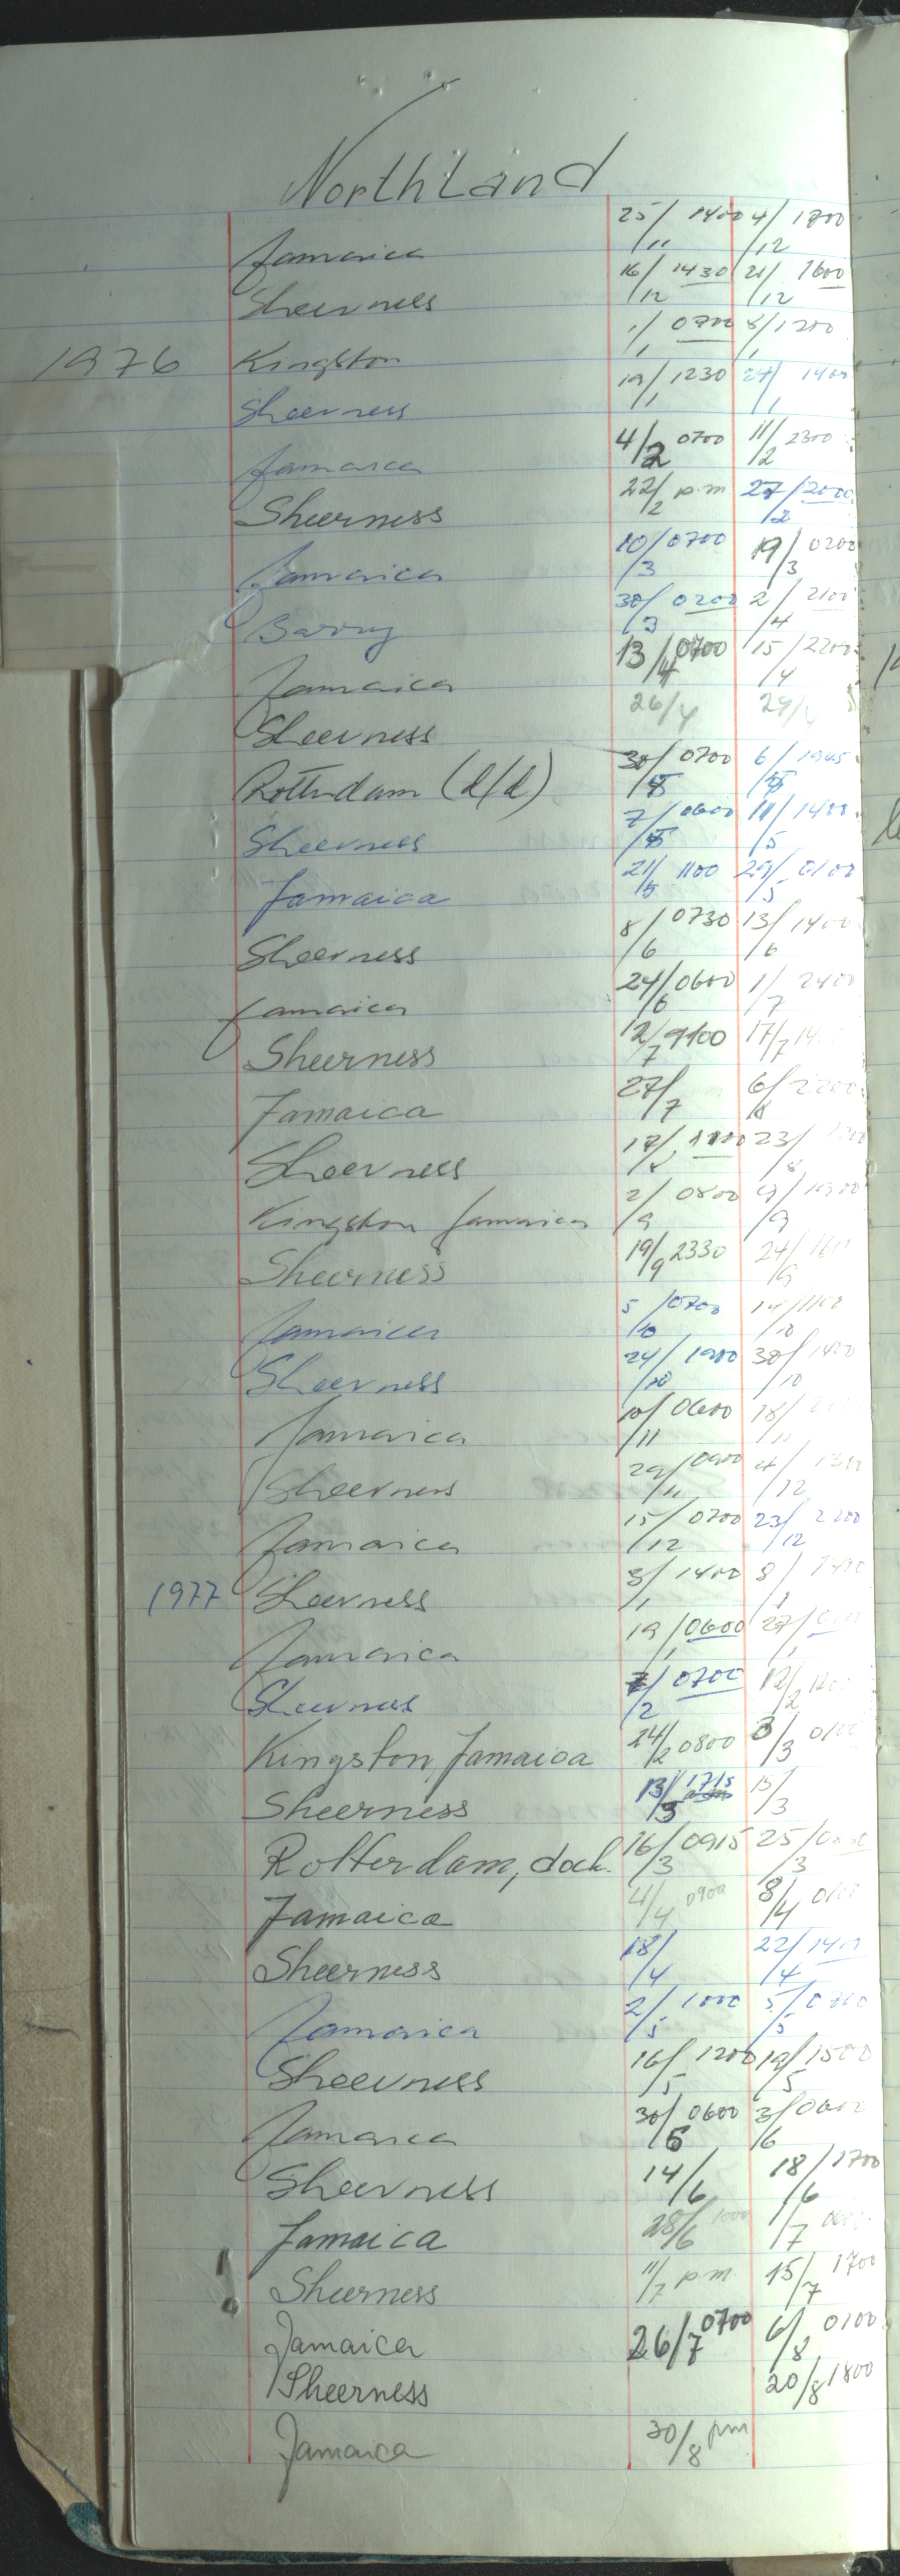 Northland
Jamaica 25/11 1400 4/12 1700
Sheerness 16/12 1430 21/12 1600
1976 Kingston 1/1 0700 8/1 1200
Sheerness 19/1 1230 27/1 1400
Jamaica 4/2 0700 11/2 2300
Sheerness 22/2 p.m 27/2 2000
Jamaica 10/3 0700 19/3 0200
Barry 30/3 0200 2/4 2100
Jamaica 13/4 0700 15/4 2200
Sheerness 26/4 29/4
Rotterdam (d/d) 30/ 0700 6/5 1945
Sheerness 7/5 0600 11/5 1400
Jamaica 21/5 1100 29/5 0100
Sheerness 8/6 0730 13/6 1400
Jamaica 24/6 0600 1/7 2400
Sheerness 12/7 17/7
Jamaica 27/7 6/8 2200
Sheerness 17/8 23/8
Kingston Jamaica 2/9 0800 9/9 1900
Sheerness 19/9 2330 24/9
Jamaica 5/10 0700 14/10 1100
Sheerness 24/10 1900 30/10 1400
Jamaica 10/11 0600 18/11
Sheerness 29/11 0900 4/12
Jamaica 15/12 0700 23/12 2200
1977 Sheerness 3/1 1400 8/1
Jamaica 19/1 0600 27/1
Sheerness 7/2 0700 12/2 1200
Kingston, Jamaica 24/2 0800 3/3 0100
Sheerness 13/3 1715 15/3
Rotterdam, dock. 16/3 0915 25/3
Jamaica 4/4 0900 8/4 0100
Sheerness 18/4 22/4 1400
Jamaica 2/5 1000 5/5 0700
Sheerness 16/5 1200 19/5 1500
Jamaica 30/5 0600 3/6 0600
Sheerness 14/6 18/6 1700
Jamaica 28/6 1000 1/7
Sheerness 11/7 p m. 15/7 1700
Jamaica 26/7 0700 6/8 0100
Sheerness 20/8 1800
Jamaica 30/8 pm